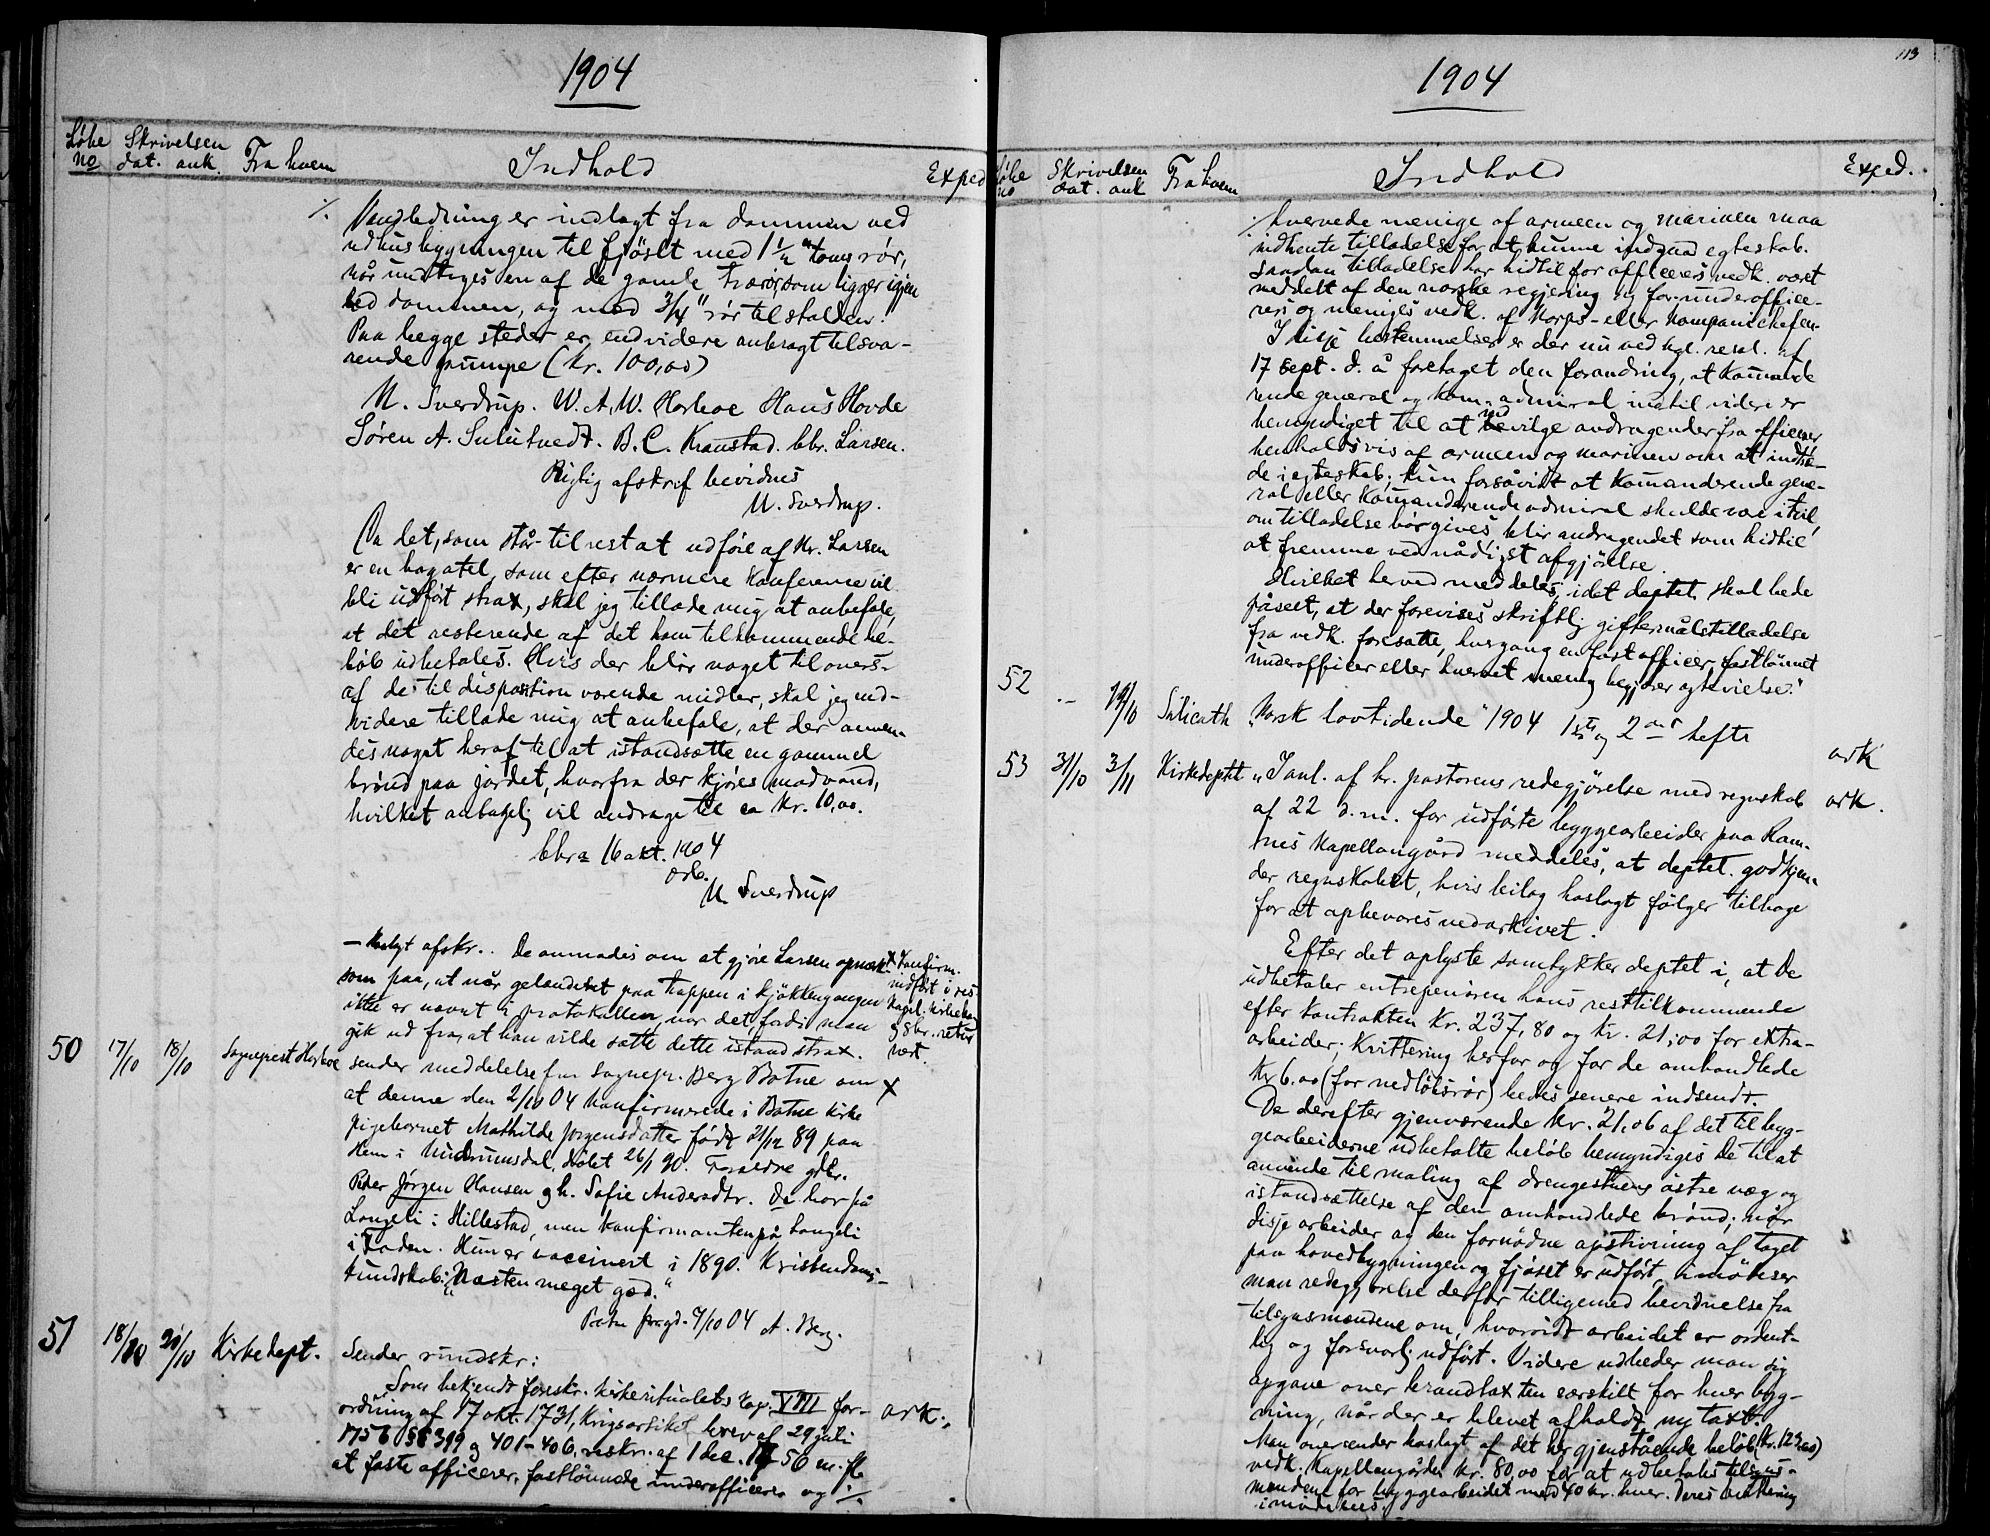 1904
Løbe Skrivelsen
no dat. ank. Fra hvem Indhold Exped
./. Vandledning er indlagt fra dammen ved
udhusbygningen til fjöset med 1 1/2 toms rør,
når undtages en af de gamle trærør, som ligger igjen
ved dammen, og med 3/4" rör til stalden.
Paa begge steder er endvidere anbragt tilsva-
rende pumpe (kr. 100,00)
U. Sverdrup. W. A. W. Horboe Hans Hovde
Søren A. B. C. Kranstad. Chr. Larsen.
Rigtig afskrif bevidnes
U. Sverdrup.
Da det, som står til rest at udføre af Hr. Larsen
er en bagatel, som efter nærmere konferance vil
bli udført strax, skal jeg tillade mig at anbefale,
at det resterende af det ham tilkommende be-
løb udbetales. Hvis der blir noget tilovers
af de til disposition værende midler, skal jeg end-
videre tillade mig at anbefale, at der anven-
des noget heraf til at istandsætte en gammel
brønd paa jordet, hvorfra der kjøres madvand,
hvilket antagelig vil andrage til ca kr. 10,00.
Chra 16 okt. 1904
ærb.
U Sverdrup
— Vedlagt afskr.. De anmodes om at gjøre Larsen opmærk-
som paa, at når gelænderet paa trappen i kjøkkengangen
ikke er nævnt i protokollen, var det, fordi man
gik ud fra, at han vilde sætte dette istand strax.
x Konfirm.
indført i res.
kapl. kirkebog
og 8br. retur
vert.
50 17/10 18/10 Sogneprest Horboe sender meddelelse fra sognepr. Berg Botne om x
at denne den 2/10 04 konfirmerede i Botne kirke
pigebarnet Mathilde Jørgensdatter født 21/12 89 paa
Hem i Undrumsdal, døbt 26/1 90. Forældre gbr.
Peder Jørgen Hansen og h. Sofie Andersdtr. De bor på
Langeli i Hillestad, men konfirmanten på Langeli
i Foden. Hun er vaccinert i 1890. Kristendoms-
kundskab: "Næsten meget god."
Botne prgd. 7/10 04 A. Berg.
51 18/10 20/10 Kirkedept. Sender rundskr:
Som bekjendt foreskr. kirkeritualets kap. VIII for-
ordning af 17 okt. 1731, Krigsartikel brev af 29 juli ark.
1756 §§ 399 og 401-406, reskr. af 1 dec. 1750 m. fl.
at faste officerer, fastlønnede underofficerer og ./.
113
1904
Løbe Skrivelsen
no dat. ank Fra hvem Indhold Exped.
./. hvervede menige af armeen og marinen maa
indhente tilladelse for at kunne indgaa egteskab.
Saadan tilladelse har hidtil for officerers vedk. været
meddelt af den norske regjering og for underoffice-
rers og meniges vedk. af korps- eller kompanichefen.
I disse bestemmelser er der nu ved kgl. resol. af
17 sept. d. å foretaget den forandring, at komande-
rende general og kom. admiral indtil videre er
bemyndiget til at bevilge andragender fra officerer
henholdsvis af armeen og marinen om at indtræ-
de i egteskab; kun forsåvidt at komanderende gene-
ral eller komanderende admiral skulde være i tvil
om tilladelse bør gives, blir andragendet som hidtil
at fremme ved nådigst afgjörelse.
Hvilket herved meddeles, idet deptet. skal bede
påseet, at der forevises skriftlig giftermålstilladelse
fra vedk. foresatte, hvergang en fast officer, fastlønnet
underofficer eller hvervet menig begjærer ægtevielse."
52 .- 14/10 Salicath "Norsk lovtidende" 1904 1ste og 2det hefte ark
53 31/10 3/11 Kirkedeptet "I anl. af hr. pastorens redegjörelse med regnskab ark.
af 22 d.m. for udførte byggearbeider paa Ram-
nes kapellangård meddeles, at deptet. godkjen-
der regnskabet, hvis bilag hoslagt følger tilbage
for at opbevares ved arkivet.
Efter det oplyste samtykker deptet i, at De
udbetaler entreprenören hans resttilkommende
efter kontrakten kr. 237,80 og kr. 21,00 for extra-
arbeider; kvittering herfor og for de omhandlede
kr 6.00 (for nedløbsrör) bedes senere indsendt.
De derefter gjenværende kr. 21,06 af det til byg-
gearbeiderne udbetalte beløb bemyndiges De til at
anvende til maling af drengestuens østre væg og
istandsættelse af den omhandlede brønd; når
disse arbeider og den fornødne opstivning af taget
paa hovedbygningen og fjøset er udført, imöteser
man redegjørelse derfor tilligemed bevidnelse fra
tilsynsmændene om, hvorvidt arbeidet er ordent-
lig og forsvarlig udført. Videre udbeder man sig
opgave over brandtaxten særskilt for hver byg-
ning, når der er blevet afholdt ny taxt.
Man oversender hoslagt af det her gjenstående beløb (kr. 123,00)
vedk. kapellangården kr. 80,00 for at udbetales tilsyns-
mændene for byggearbeidet med 40 kr. hver. Deres kvittering
imödesees.